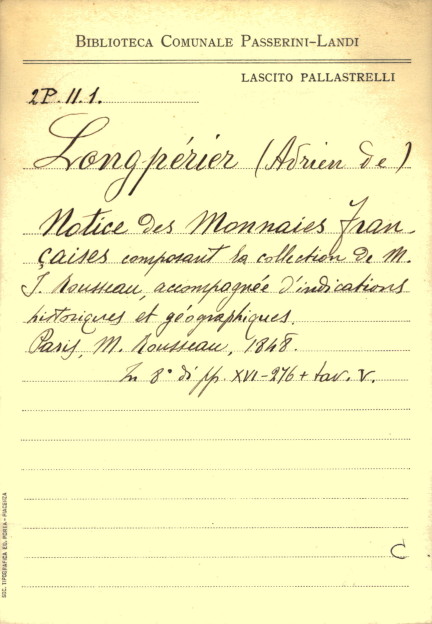 BIBLIOTECA COMUNALE PASSERINI-LANDI
LASCITO PALLASTRELLI
2P. II. 1.
Longpérier (Adrien de)
Notice des Monnaies Fran-
çaises composant la collection de M.
J. Rousseau, accompagnée d'indications
historiques et géographiques.
Paris, M. Rousseau, 1848.
In 8° di pp. XVI-276 + tav. V.
C
SOC. TIPOGRAFICA ED. PORTA - PIACENZA